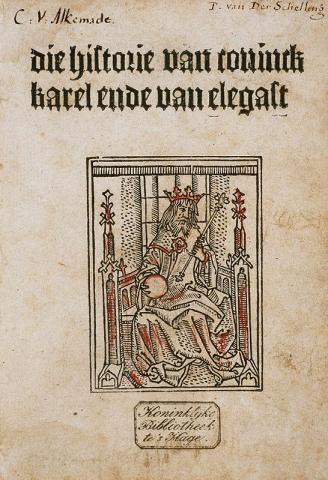 C: V: Alkemade.
P. van Der Schelling
die historie van coninck
karel ende van elegast
Koninklyke
Bibliotheek
te's Hage.